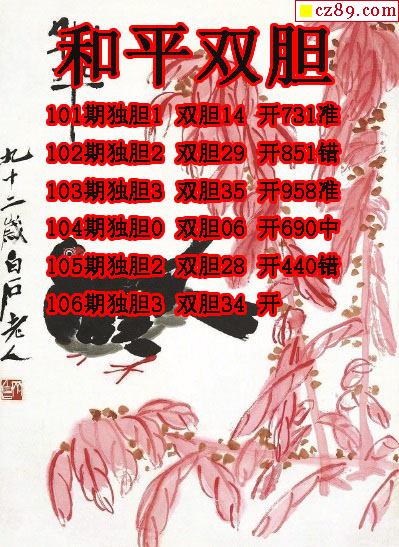 cz89.com
和平双胆
101期独胆1 双胆14 开731准
102期独胆2 双胆29 开851错
103期独胆3 双胆35 开958准
104期独胆0 双胆06 开690中
105期独胆2 双胆28 开440错
106期独胆3 双胆34 开
九十二岁白石老人